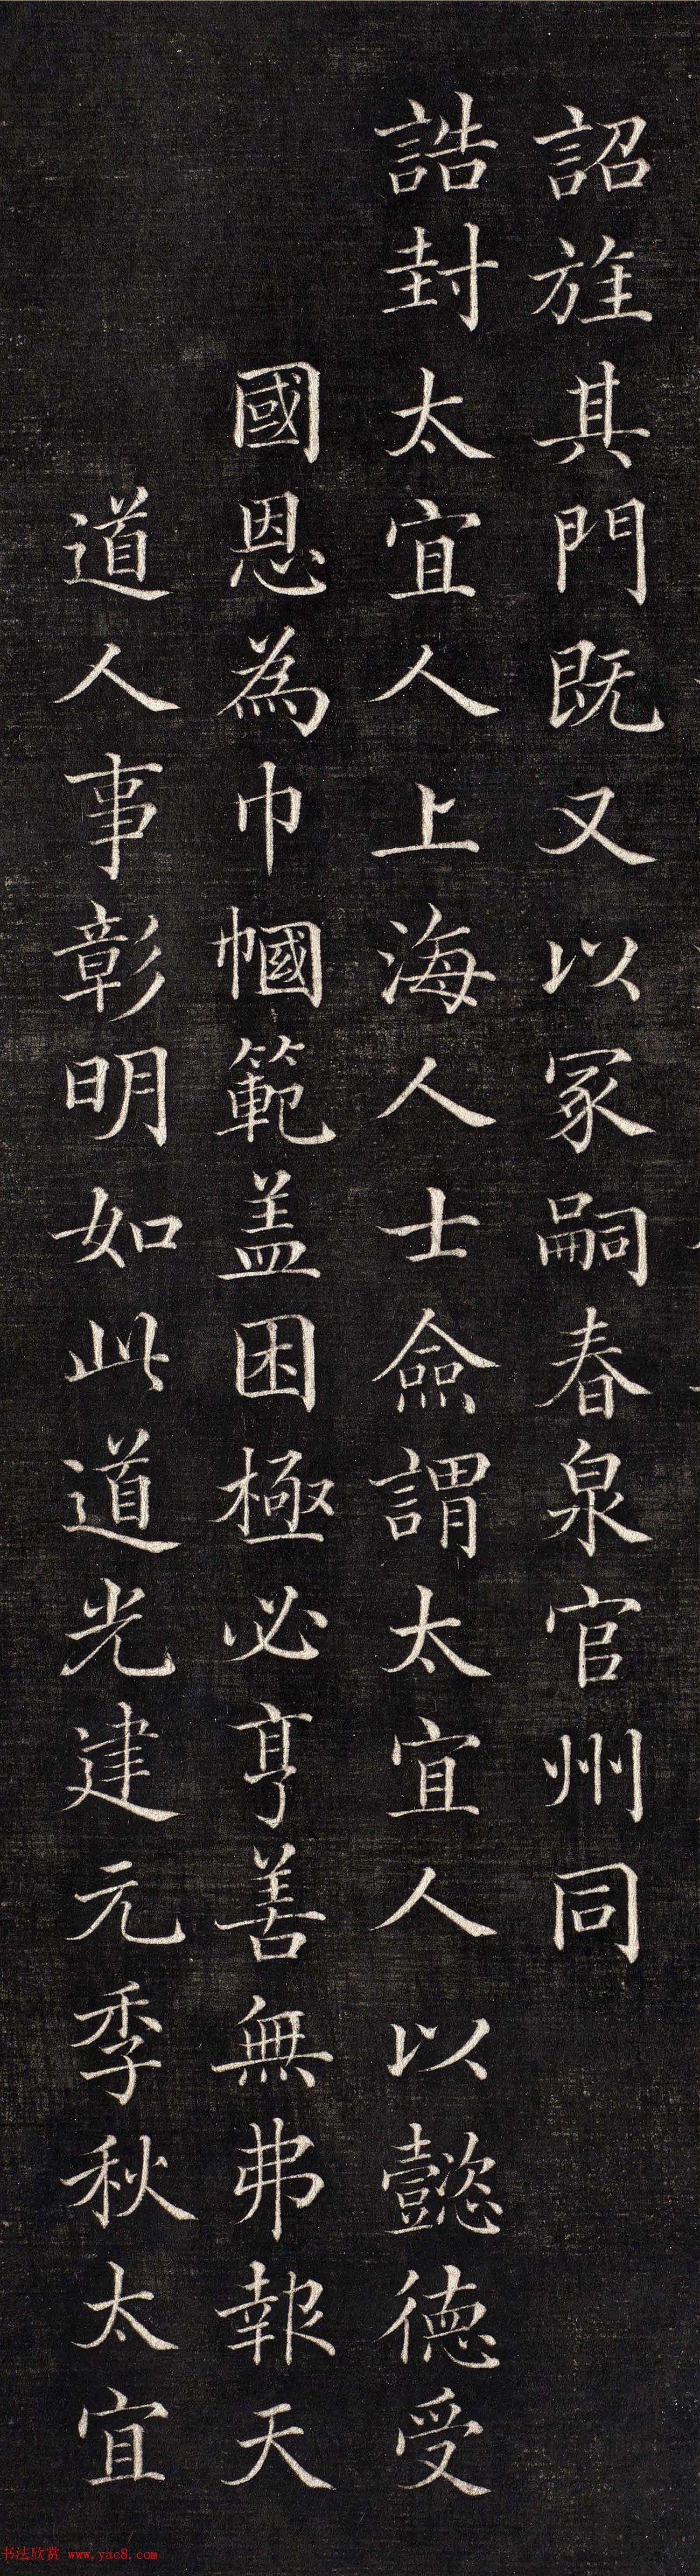 詔旌其門既又以冢嗣春泉官州同
誥封太宜人上海人士僉謂太宜人以懿德受
國恩為巾幗範盖困極必亨善無弗報天
道人事彰明如此道光建元季秋太宜
书法欣赏 www.yac8.com